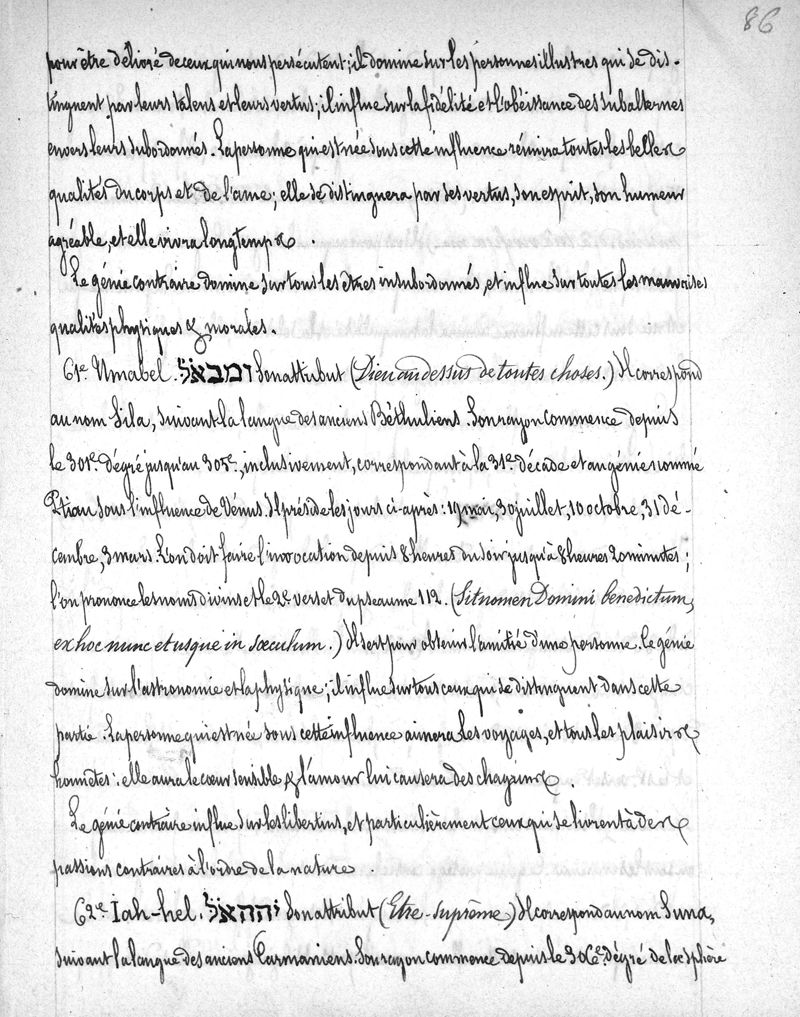 86
pour être délivré de ceux qui nous persécutent; il domine sur les personnes illustres qui se dis-
tinguent par leurs talens et leurs vertus; il influe sur la fidélité et l'obéissance des subalternes
envers leurs subordonnés. La personne qui est née sous cette influence réunira toutes les belles
qualités du corps et de l'ame; elle se distinguera par ses vertus, son esprit, son humeur
agréable, et elle vivra longtemps.
Le génie contraire domine sur tous les êtres insubordonnés, et influe sur toutes les mauvaises
qualités physiques & morales.
61e. Umabel. ומבאל Son attribut (Dieu au dessus de toutes choses.) Il correspond
au nom Sila, suivant la langue des anciens Béthuliens. Son rayon commence depuis
le 301e. dégré jusqu'au 305e., inclusivement, correspondant à la 31e. décade et au génie nommé
Ptiau sous l'influence de Vénus. Il préside les jours ci-après: 19 mai, 30 juillet, 10 octobre, 31 dé-
cembre, 3 mars. L'on doit faire l'invocation depuis 8 heures du soir jusqu'à 8 heures 20 minutes;
l'on prononce les noms divins et le 2e. verset du pseaume 112. (Sit nomen Domini benedictum,
ex hoc nunc et usque in sœculum.) Il sert pour obtenir l'amitié d'une personne. Ce génie
domine sur l'astronomie et la physique; il influe sur tous ceux qui se distinguent dans cette
partie. La personne qui est née sous cette influence aimera les voyages, et tous les plaisirs
honnêtes: elle aura le cœur sensible & l'amour lui causera des chagrins.
Le génie contraire influe sur les libertins, et particulièrement ceux qui se livrent à des
passions contraires à l'ordre de la nature.
62e. Iah-hel. יההאל Son attribut (Etre-suprême) Il correspond au nom Suna,
suivant la langue des anciens Carmaniens. Son rayon commence depuis le 306e. dégré de la sphère